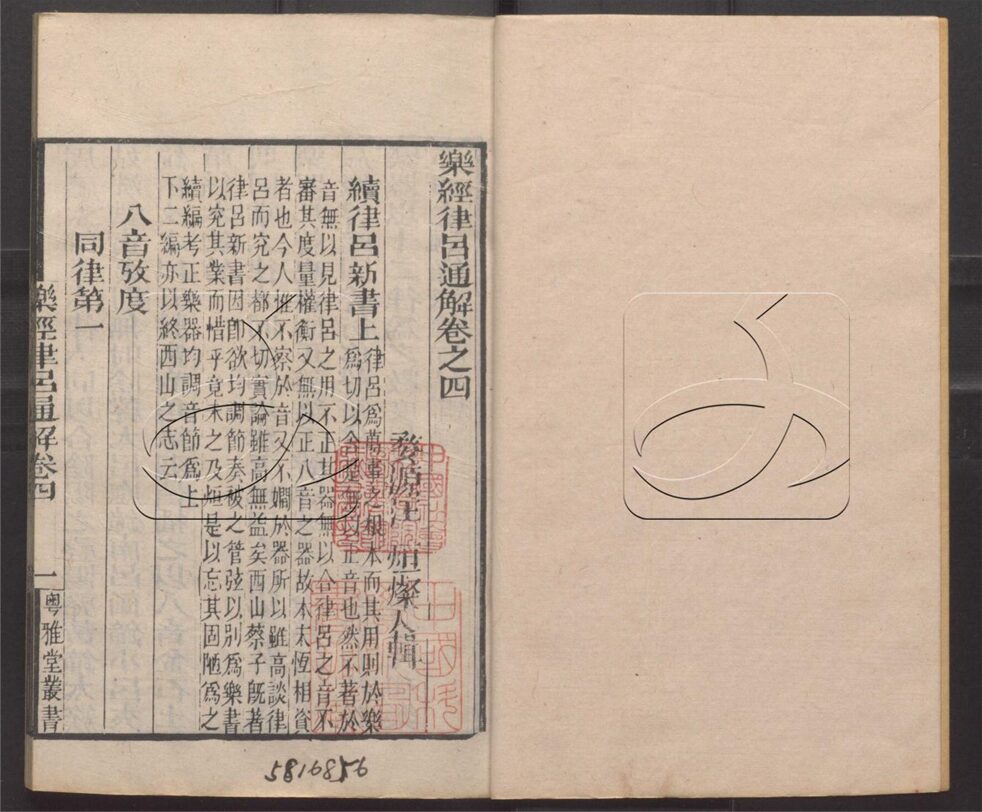 樂經律呂通解卷之四
婺源汪 烜燦人輯
續律呂新書上
律呂爲萬事之根本而其用則於樂
爲切無以正音也然不著於
音無以見律呂之用不正其器無以合律呂之音不
審其度量權衡又無以正八音之器故本末恆相資
者也今人惟不察於音又不嫻於器所以雖高談律
呂而究之都不切實論雖高無益矣西山蔡子既著
律呂新書因卽欲均調節奏被之管弦以別爲樂書
以究其業而惜乎竟未之及烜是以忘其固陋爲之
續編考正樂器均調音節爲上
下二編亦以終西山之志云
八音攷度
同律第一
樂經律呂通解卷四
一
粵雅堂叢書